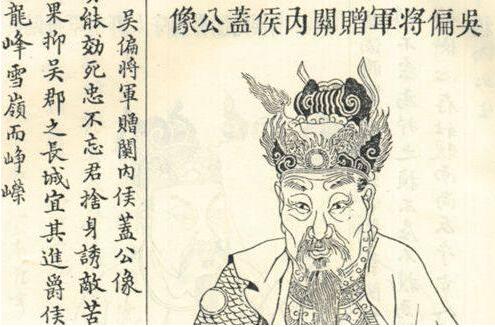 吳偏將軍贈關內侯蓋公像
吳偏將軍贈關內侯蓋公像
能効死忠不忘君捨身誘敵苦
果抑吳郡之長城宜其進爵侯
龍峰雪嶺而崢嶸